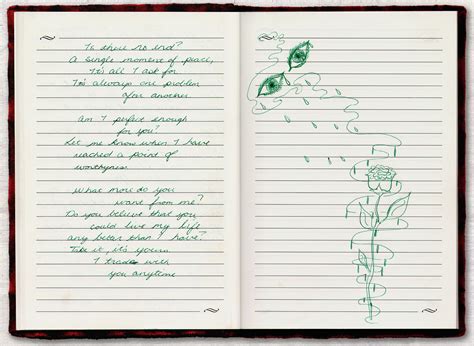 Is there no end?
A single moment of peace,
It's all I ask for
It's always one problem
after another.
Am I perfect enough
for you?
Let me know when I have
reached a point of
worthyness
What more do you
want from me?
Do you believe that you
could live my life
any better than I have?
Take it, it's yours
I trade with
you anytime